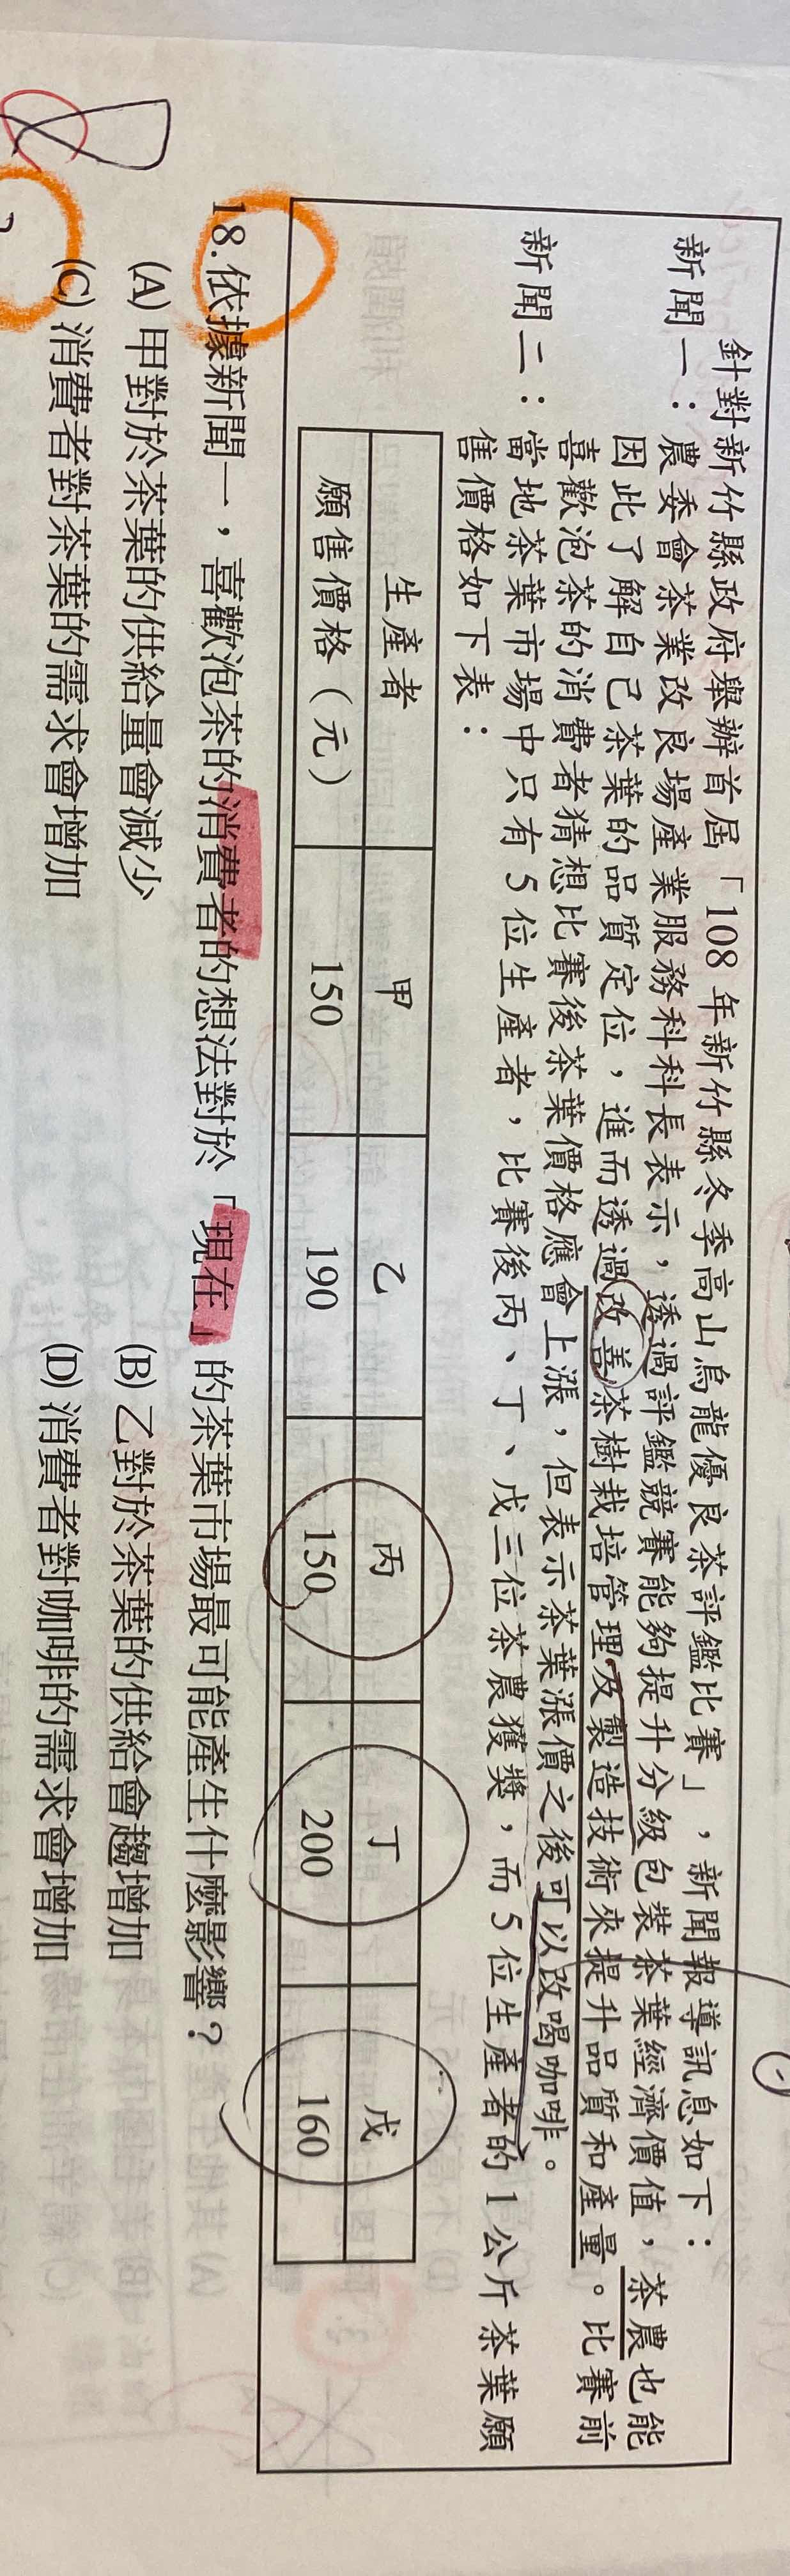 針對新竹縣政府舉辦首屆「108 年新竹縣冬季高山烏龍優良茶評鑑比賽」，新聞報導訊息如下：
新聞一：農委會茶業改良場產業服務科科長表示，透過評鑑競賽能夠提升分級包裝茶葉經濟價值，茶農也能
因此了解自己茶葉的品質定位，進而透過改善茶樹栽培管理及製造技術來提升品質和產量。比賽前
喜歡泡茶的消費者猜想比賽後茶葉價格應會上漲，但表示茶葉漲價之後可以改喝咖啡。
新聞二：當地茶葉市場中只有 5 位生產者，比賽後丙、丁、戊三位茶農獲獎，而 5 位生產者的 1 公斤茶葉願
售價格如下表：
生產者 甲 乙 丙 丁 戊
願售價格（元） 150 190 150 200 160
18. 依據新聞一，喜歡泡茶的消費者的想法對於「現在」的茶葉市場最可能產生什麼影響？
(A) 甲對於茶葉的供給量會減少 (B) 乙對於茶葉的供給會趨增加
(C) 消費者對茶葉的需求會增加 (D) 消費者對咖啡的需求會增加